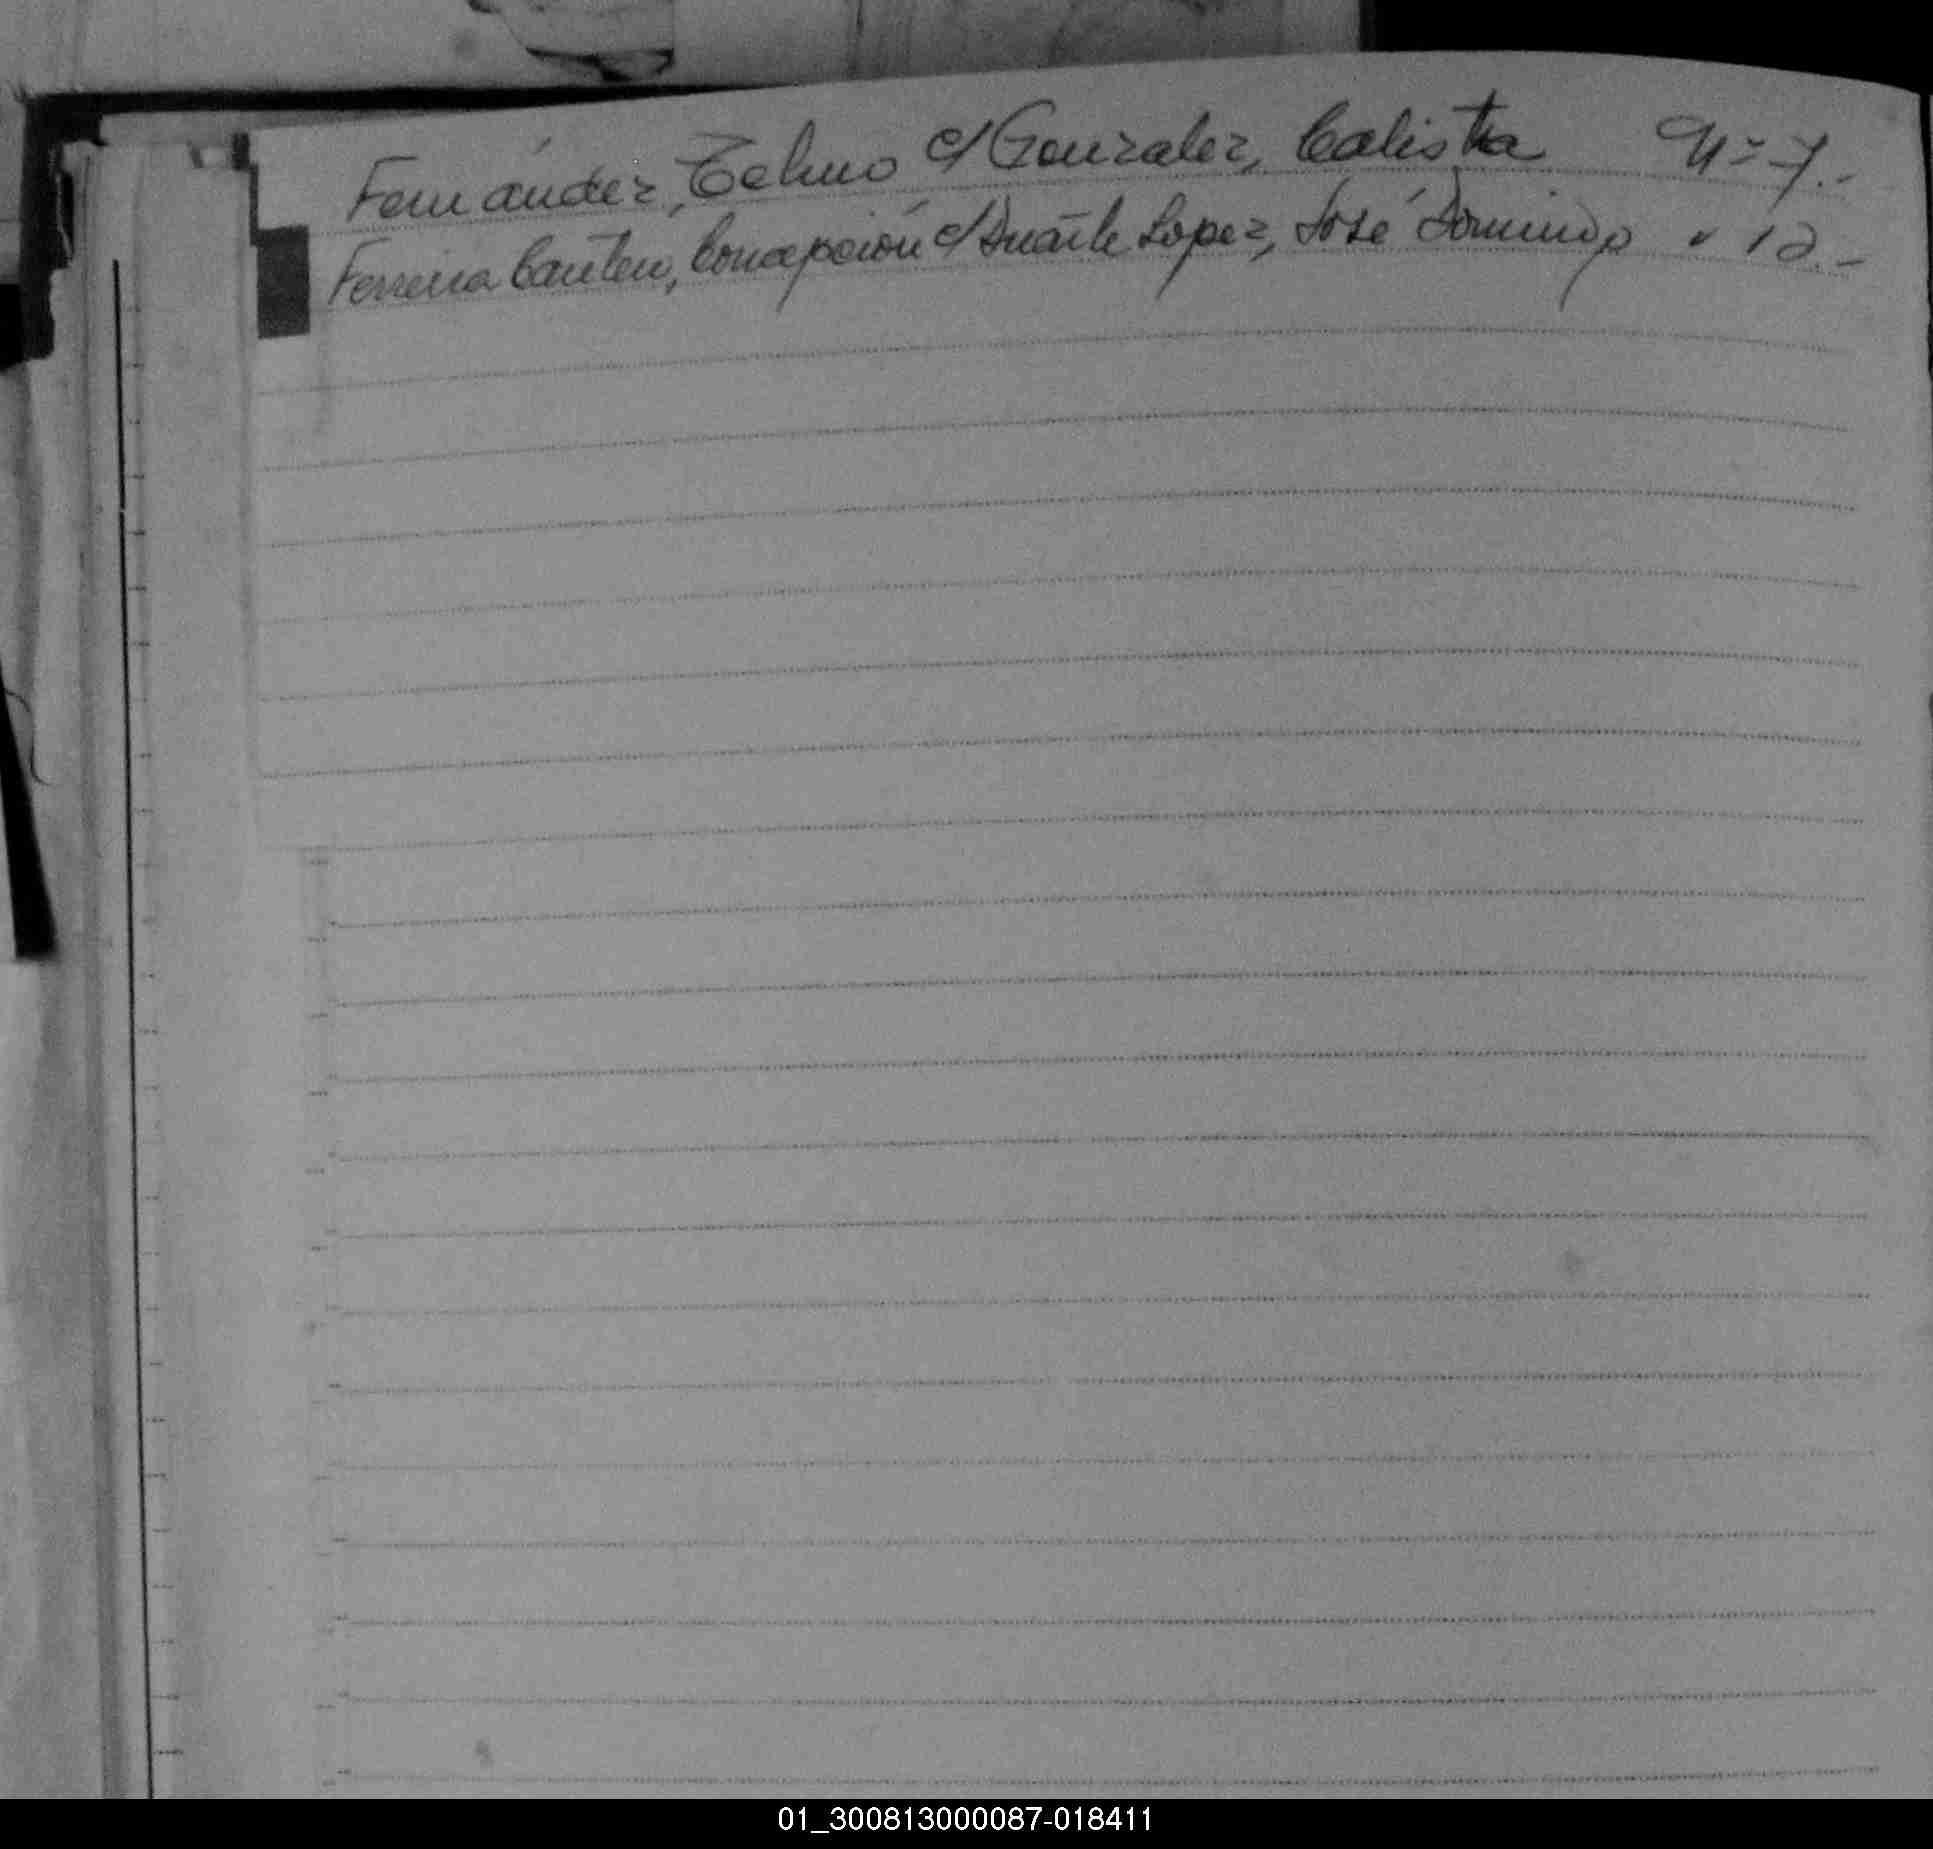 Fernández, Telmo c/ Gonzalez, Calista Nº 7.-
Ferreira Cantero, Concepción c/ Duarte Lopez, José Domingo " 12.-
01_300813000087-018411